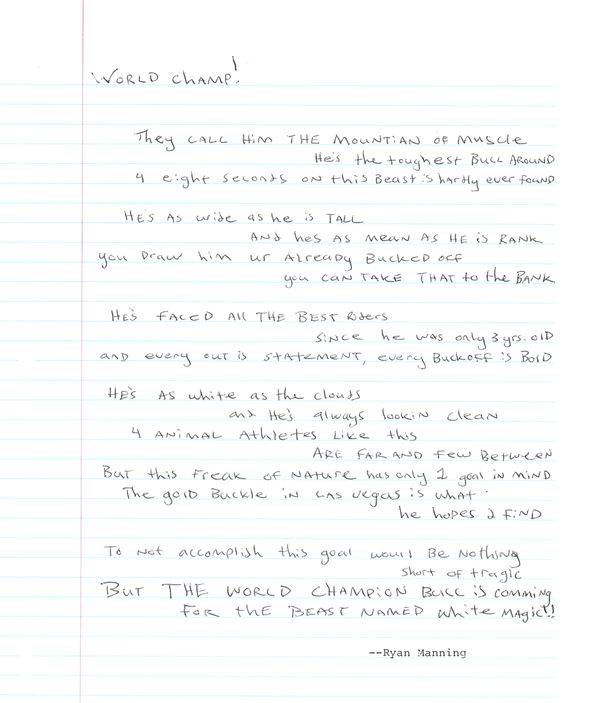 WORLD CHAMP!
They CALL Him THE MOUNTIAN OF MUSCLE
He's the toughest BULL AROUND
4 eight seconds ON this Beast is hartly ever found
HE'S AS wide as he is TALL
AND hes AS mean AS HE is RANK
you Draw him ur Already Bucked off
you CAN TAKE THAT to the BANK
HE'S FACED All THE BEST Riders
SINCE he was only 3 yrs. old
and every out is STATEMENT, every Buckoff is Bold
HE'S AS white as the clouds
and He's always lookin clean
4 ANIMAL Athletes Like this
ARE FAR AND Few Between
BUT this Freak of NATure has only 1 goal in MIND
The gold Buckle in LAS Vegas is what
he hopes 2 FIND
To Not accomplish this goal would Be Nothing
short of tragic
BUT THE WORLD CHAMPION BULL is comming
FOR the BEAST NAMED White MAgic!!
--Ryan Manning